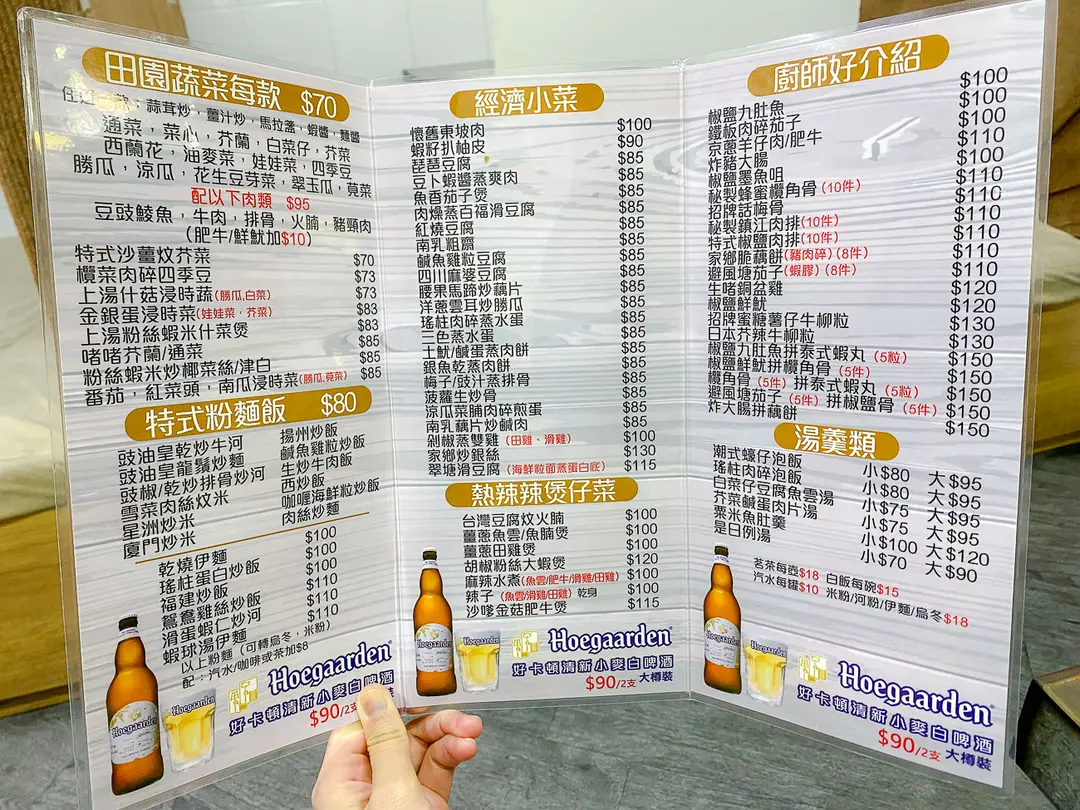 田園蔬菜每款 $70
蒜茸炒，薑汁炒，馬拉盞，蝦醬，麵醬
通菜，菜心，芥蘭，白菜仔，芥菜
西蘭花，油麥菜，娃娃菜，四季豆
勝瓜，涼瓜，花生豆芽菜，翠玉瓜，莧菜
配以下肉類 $95
豆豉鯪魚，牛肉，排骨，火腩，豬頸肉
(肥牛/鮮魷加$10)
特式沙薑炆芥菜 $70
欖菜肉碎四季豆 $73
上湯什菇浸時蔬(勝瓜,白菜) $73
金銀蛋浸時菜(娃娃菜，芥菜) $83
上湯粉絲蝦米什菜煲 $83
啫啫芥蘭/通菜 $85
粉絲蝦米炒椰菜絲/津白 $85
番茄，紅菜頭，南瓜浸時菜(勝瓜,莧菜) $85
特式粉麵飯 $80
豉油皇乾炒牛河 揚州炒飯
豉油皇龍鬚炒麵 鹹魚雞粒炒飯
豉椒/乾炒排骨炒河 生炒牛肉飯
雪菜肉絲炆米 西炒飯
星洲炒米 咖喱海鮮粒炒飯
廈門炒米 肉絲炒麵
乾燒伊麵 $100
瑤柱蛋白炒飯 $100
福建炒飯 $100
鴛鴦雞絲炒飯 $110
滑蛋蝦仁炒河 $110
蝦球湯伊麵 $110
以上粉麵（可轉烏冬，米粉）
配：汽水/咖啡或茶加$8
Hoegaarden
好卡頓清新小麥白啤酒
$90/2支
經濟小菜
懷舊東坡肉 $100
蝦籽扒柚皮 $90
琵琶豆腐 $85
豆卜蝦醬蒸爽肉 $85
魚香茄子煲 $85
肉燥蒸百福滑豆腐 $85
紅燒豆腐 $85
南乳粗齋 $85
鹹魚雞粒豆腐 $85
四川麻婆豆腐 $85
腰果馬蹄炒藕片 $85
洋蔥雲耳炒勝瓜 $85
瑤柱肉碎蒸水蛋 $85
三色蒸水蛋 $85
土魷/鹹蛋蒸肉餅 $85
銀魚乾蒸肉餅 $85
梅子/豉汁蒸排骨 $85
菠蘿生炒骨 $85
涼瓜菜脯肉碎煎蛋 $85
南乳藕片炒鹹肉 $85
剁椒蒸雙雞（田雞、滑雞） $100
家鄉炒銀絲 $130
翠塘滑豆腐（海鮮粒面蒸蛋白底） $115
熱辣辣煲仔菜
台灣豆腐炆火腩 $100
薑蔥魚雲/魚腩煲 $100
薑蔥田雞煲 $100
胡椒粉絲大蝦煲 $120
麻辣水煮(魚雲/肥牛/滑雞/田雞) $100
辣子（魚雲/滑雞/田雞）乾身 $100
沙嗲金菇肥牛煲 $115
Hoegaarden
好卡頓清新小麥白啤酒
$90/2支 大樽裝
廚師好介紹
椒鹽九肚魚 $100
鐵板肉碎茄子 $100
京蔥羊仔肉/肥牛 $100
炸豬大腸 $110
椒鹽墨魚咀 $100
秘製蜂蜜欖角骨(10件) $110
招牌話梅骨 $110
秘製鎮江肉排(10件) $110
特式椒鹽肉排(10件) $110
家鄉脆藕餅(豬肉碎)(8件) $110
避風塘茄子(蝦膠)(8件) $110
生啫銅盆雞 $120
椒鹽鮮魷 $120
招牌蜜糖薯仔牛柳粒 $130
日本芥辣牛柳粒 $130
椒鹽九肚魚拼泰式蝦丸（5粒） $150
椒鹽鮮魷拼欖角骨（5件） $150
欖角骨（5件）拼泰式蝦丸（5粒） $150
避風塘茄子（5件）拼椒鹽骨（5件） $150
炸大腸拼藕餅 $150
湯羹類
潮式蠔仔泡飯 小$80 大$95
瑤柱肉碎泡飯 小$80 大$95
白菜仔豆腐魚雲湯 小$75 大$95
芥菜鹹蛋肉片湯 小$75 大$95
粟米魚肚羹 小$100 大$120
是日例湯 小$70 大$90
茗茶每壺$18 白飯每碗$15
汽水每罐$10 米粉/河粉/伊麵/烏冬$18
Hoegaarden
好卡頓清新小麥白啤酒
$90/2支 大樽裝